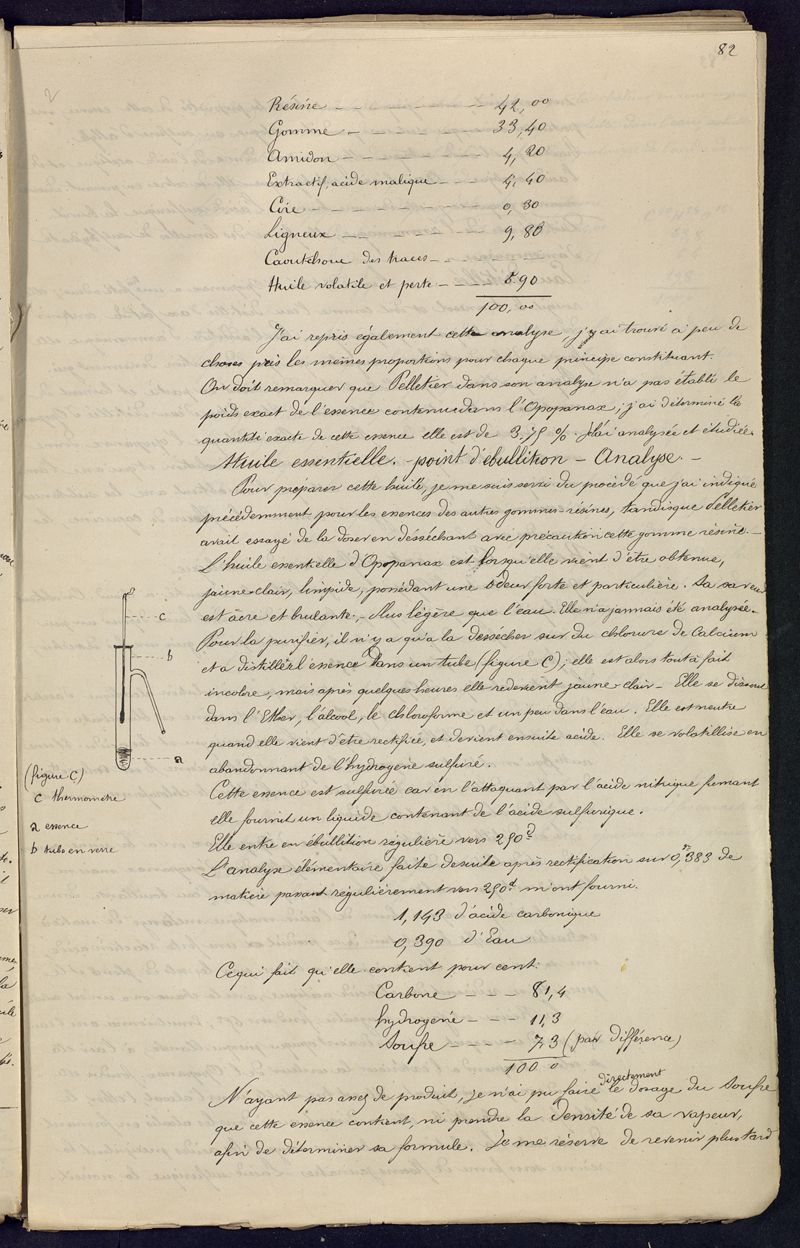 82
Résine - - - - - - 42,00
Gomme - - - - - - 33,40
Amidon - - - - - - 4,20
Extractif, acide malique - - - 4,40
Cire - - - - - - 0,30
Ligneux - - - - - - 9,80
Caoutchouc des traces - - - - - -
Huile volatile et perte - - - - 5 90
100,00
J'ai repris également cette analyse, j'y ai trouvé à peu de
choses près les mêmes proportions pour chaque principe constituant.
On doit remarquer que Pelletier dans son analyse n'a pas établi le
poids exact de l'essence contenue dans l'Opopanax; j'ai déterminé la
quantité exacte de cette essence elle est de 3.75 %. Je l'ai analysée et étudiée.
Huile essentielle. - point d'ébullition - Analyse. -
Pour préparer cette huile, je me suis servi du procédé que j'ai indiqué
précédemment pour les essences des autres gommes-résines, tandisque Pelletier
avait essayé de la doser en désséchant avec précaution cette gomme résine. -
L'huile essentielle d'Opopanax est lorsqu'elle vient d'être obtenue,
jaune-clair, limpide, possédant une odeur forte et particulière. Sa saveur
est âcre et brulante. - Plus légère que l'eau. Elle n'a jamais été analysée. -
Pour la purifier, il n'y a qu'a la dessécher sur du chlorure de Calcium
et a distiller l'essence dans un tube (figure C); elle est alors tout à fait
incolore, mais après quelques heures elle redevient jaune-clair - Elle se dissout
dans l'Ether, l'alcool, le chloroforme et un peu dans l'eau. Elle est neutre
quand elle vient d'être rectifiée, et devient ensuite acide. Elle se volatillise en
abandonnant de l'hydrogène sulfuré.
Cette essence est sulfurée car en l'attaquant par l'acide nitrique fumant
elle fournit un liquide contenant de l'acide sulfurique.
Elle entre en ébullition régulière vers 250d
L'analyse élémentaire faite desuite après rectification sur 0,gr383 de
matière passant régulièrement vers 250d. m'ont fourni.
1,143 d'acide carbonique
0,390 d'Eau
Ce qui fait qu'elle contient pour cent.
Carbone - - - 81,4
hydrogène - - - 11,3
Soufre - - - - 7,3 (par différence)
100 0
N'ayant pas assez de produit, je n'ai pu faire directement le dosage du Soufre
que cette essence contient, ni prendre la densité de sa vapeur,
afin de déterminer sa formule. Je me réserve de revenir plus tard
c
b
a
(figure C)
c thermomètre
a essence
b tube en verre